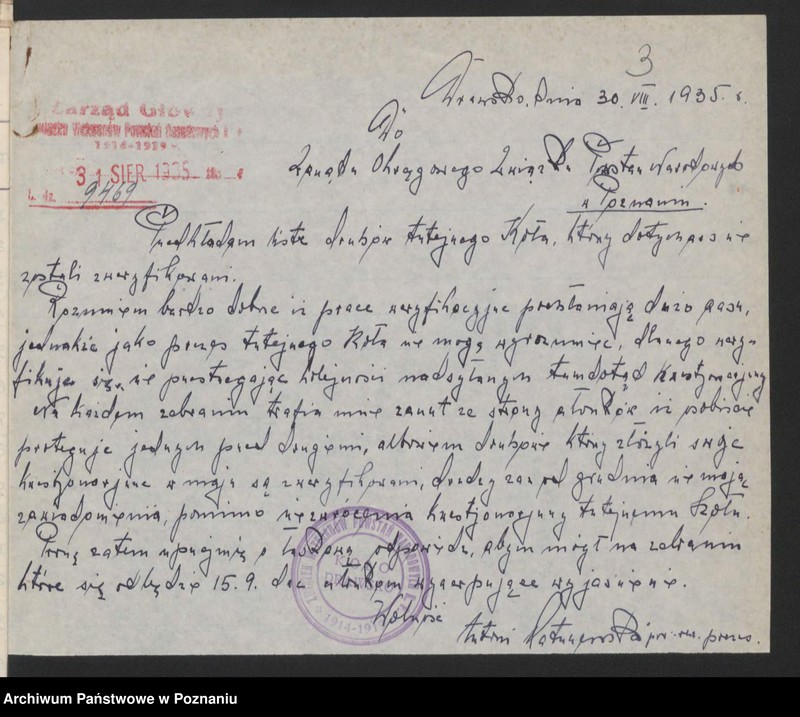 3
Drawsko, dnia 30.VIII.1935.r.
Zarząd Główny
Związku Weteranów Powstań Narodowych R. P.
1914-1919
31 SIER 1935
L. dz. 9469
Do
Zarządu Okręgowego Związku Powstań Narodowych
w Poznaniu.
Przedkładam listę druhów tutejszego Koła, którzy dotychczas nie
zostali zweryfikowani.
Rozumiem bardzo dobrze iż prace weryfikacyjne pochłaniają dużo czasu,
jednakże jako prezes tutejszego Koła nie mogę wyrozumieć, dlaczego weryfi-
fikuje się, nie przestrzegając kolejności nadsyłanych kwestjonarjuszy
Na każdem zebraniu trafia mnie zarzut ze strony członków iż osobiście
protęguje jednych przed drugiemi, albowiem druhowie którzy złożyli swoje
kwestjonarjusze w maju są zweryfikowani, drudzy zaś od grudnia nie mają
zawiadomienia, pomimo niezwrócenia kwestjonarjuszy tutejszemu Kołu.
Proszę zatem uprzejmie o łaskawą odpowiedź, abym mógł na zebraniu
które się odbędzie 15.9. dać członkom wyczerpujące wyjaśnienie.
Wolność
1914-19
prezes.